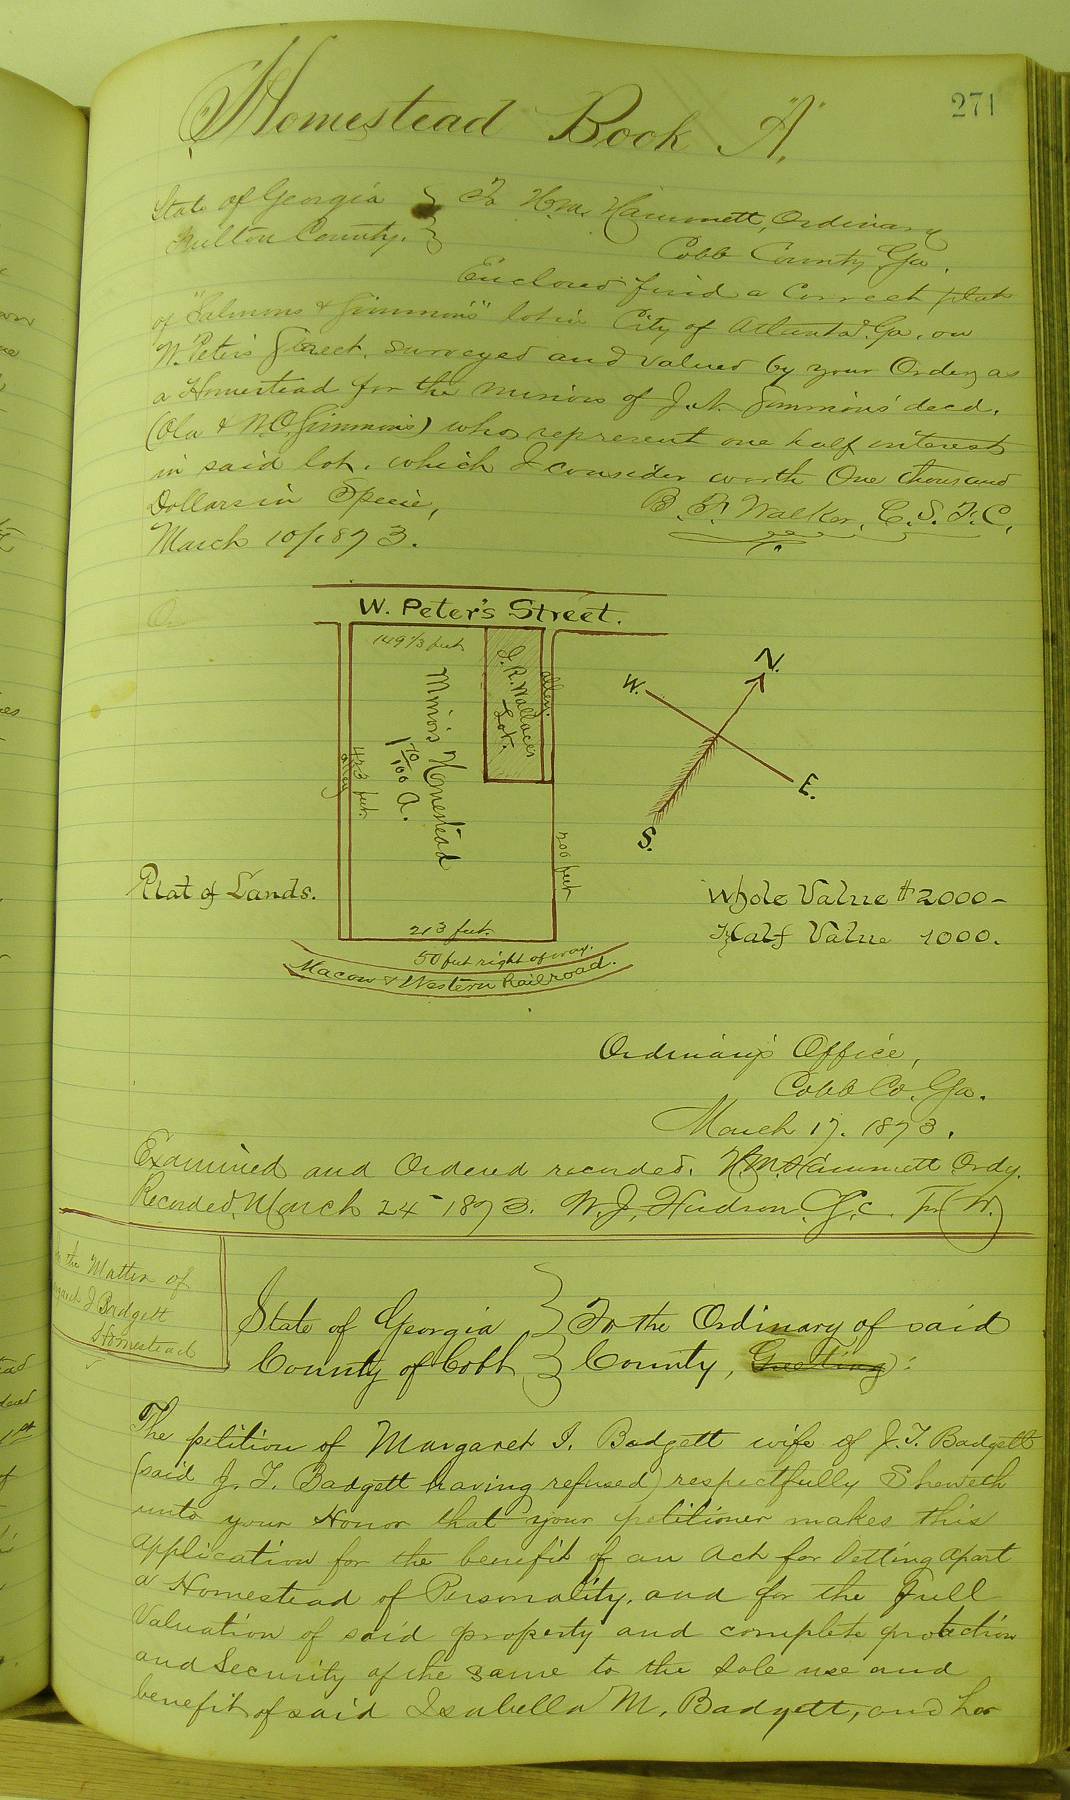 271
Homestead Book "A"
State of Georgia } To Wm. Hammett, Ordinary
Fulton County. } Cobb County, Ga.
Enclosed find a correct plat
of "Salmons & Simmons" lot in City of Atlanta, Ga. on
W. Peters Street, surveyed and valued by your Order, as
a Homestead for the minors of J. N. Simmons' decd.
(Ola & N.O. Simmons) who represent one half interest
in said lot. which I consider worth One thousand
Dollars in Specie,
B. F. Walker, C. S. F. C.
March 10/1873.
W. Peter's Street.
149 1/3 feet
J. R. Wallaces Lot.
alley.
Minors Homestead
1 70/100 A.
423 feet.
alley
200 feet
213 feet.
50 feet right of way.
Macon & Western Railroad.
N.
W.
E.
S.
Plat of Lands.
Whole Value $2000-
Half Value 1000.
Ordinary's Office,
Cobb Co. Ga.
March 17. 1873.
Examined and Ordered recorded. Wm. Hammett Ordy.
Recorded, March 24 - 1873. W. J. Hudson
the Matter of
J Badgett
Homestead
State of Georgia } To the Ordinary of said
County of Cobb } County, Greeting:
The petition of Margaret I. Badgett wife of J. T. Badgett
(said J. T. Badgett having refused) respectfully Sheweth
unto your Honor that your petitioner makes this
application for the benefit of an Act for Setting apart
a Homestead of Personality, and for the Full
Valuation of said property and complete protection
and Security of the same to the Sole use and
benefit of said Isabella M. Badgett, and her